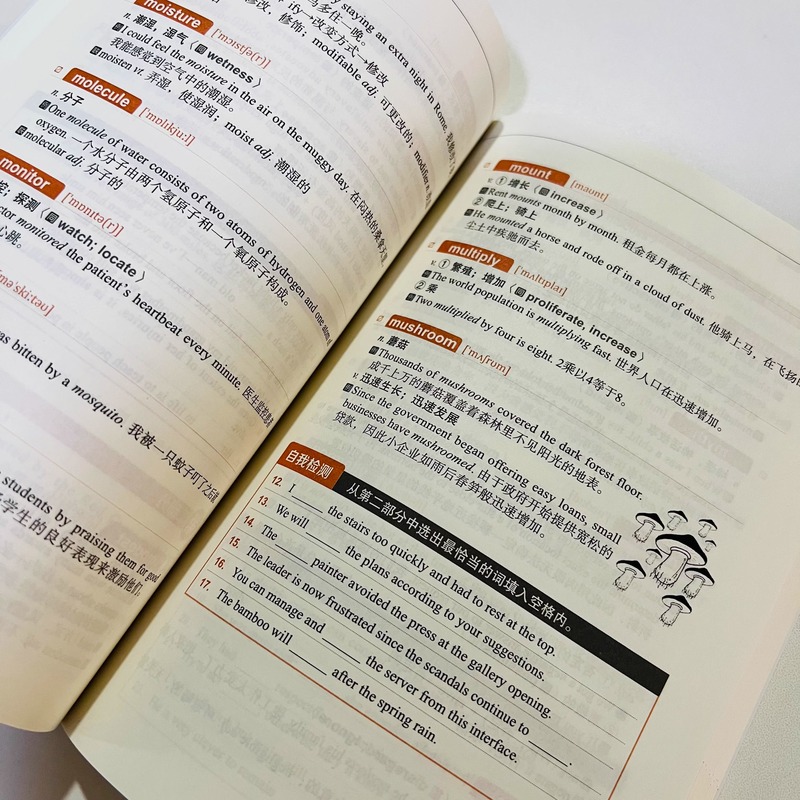 staying an extra night in Rome.
马多住一晚。
修改，修饰；modifiable adj. 可更改的；modifier n.
moisture ['mɔɪstʃə(r)]
n. 潮湿，湿气〈同 wetness〉
I could feel the moisture in the air on the muggy day.
我能感觉到空气中的潮湿。
moisten vt. 弄湿，使湿润；moist adj. 潮湿的
molecule ['mɒlɪkjuːl]
n. 分子
One molecule of water consists of two atoms of hydrogen and one atom of
oxygen. 一个水分子由两个氢原子和一个氧原子构成。
molecular adj. 分子的
monitor ['mɒnɪtə(r)]
探测〈同 watch; locate〉
monitored the patient's heartbeat every minute.
心跳。
was bitten by a mosquito. 我被一只蚊子叮了之后
students by praising them for good
学生的良好表现来激励他们。
mount [maʊnt]
v. ①增长〈同 increase〉
Rent mounts month by month. 租金每月都在上涨。
②爬上；骑上
He mounted a horse and rode off in a cloud of dust. 他骑上马，在飞扬的
尘土中疾驰而去。
multiply ['mʌltɪplaɪ]
v. ①繁殖；增加〈同 proliferate, increase〉
The world population is multiplying fast. 世界人口在迅速增加。
②乘
Two multiplied by four is eight. 2乘以4等于8。
mushroom ['mʌʃrʊm]
n. 蘑菇
Thousands of mushrooms covered the dark forest floor.
成千上万的蘑菇覆盖着森林里不见阳光的地表。
v. 迅速生长；迅速发展
Since the government began offering easy loans, small
businesses have mushroomed. 由于政府开始提供宽松的
贷款，因此小企业如雨后春笋般迅速增加。
自我检测
从第二部分中选出最恰当的词填入空格内。
12. I ____ the stairs too quickly and had to rest at the top.
13. We will ____ the plans according to your suggestions.
14. The ____ painter avoided the press at the gallery opening.
15. The leader is now frustrated since the scandals continue to ____.
16. You can manage and ____ the server from this interface.
17. The bamboo will ____ after the spring rain.